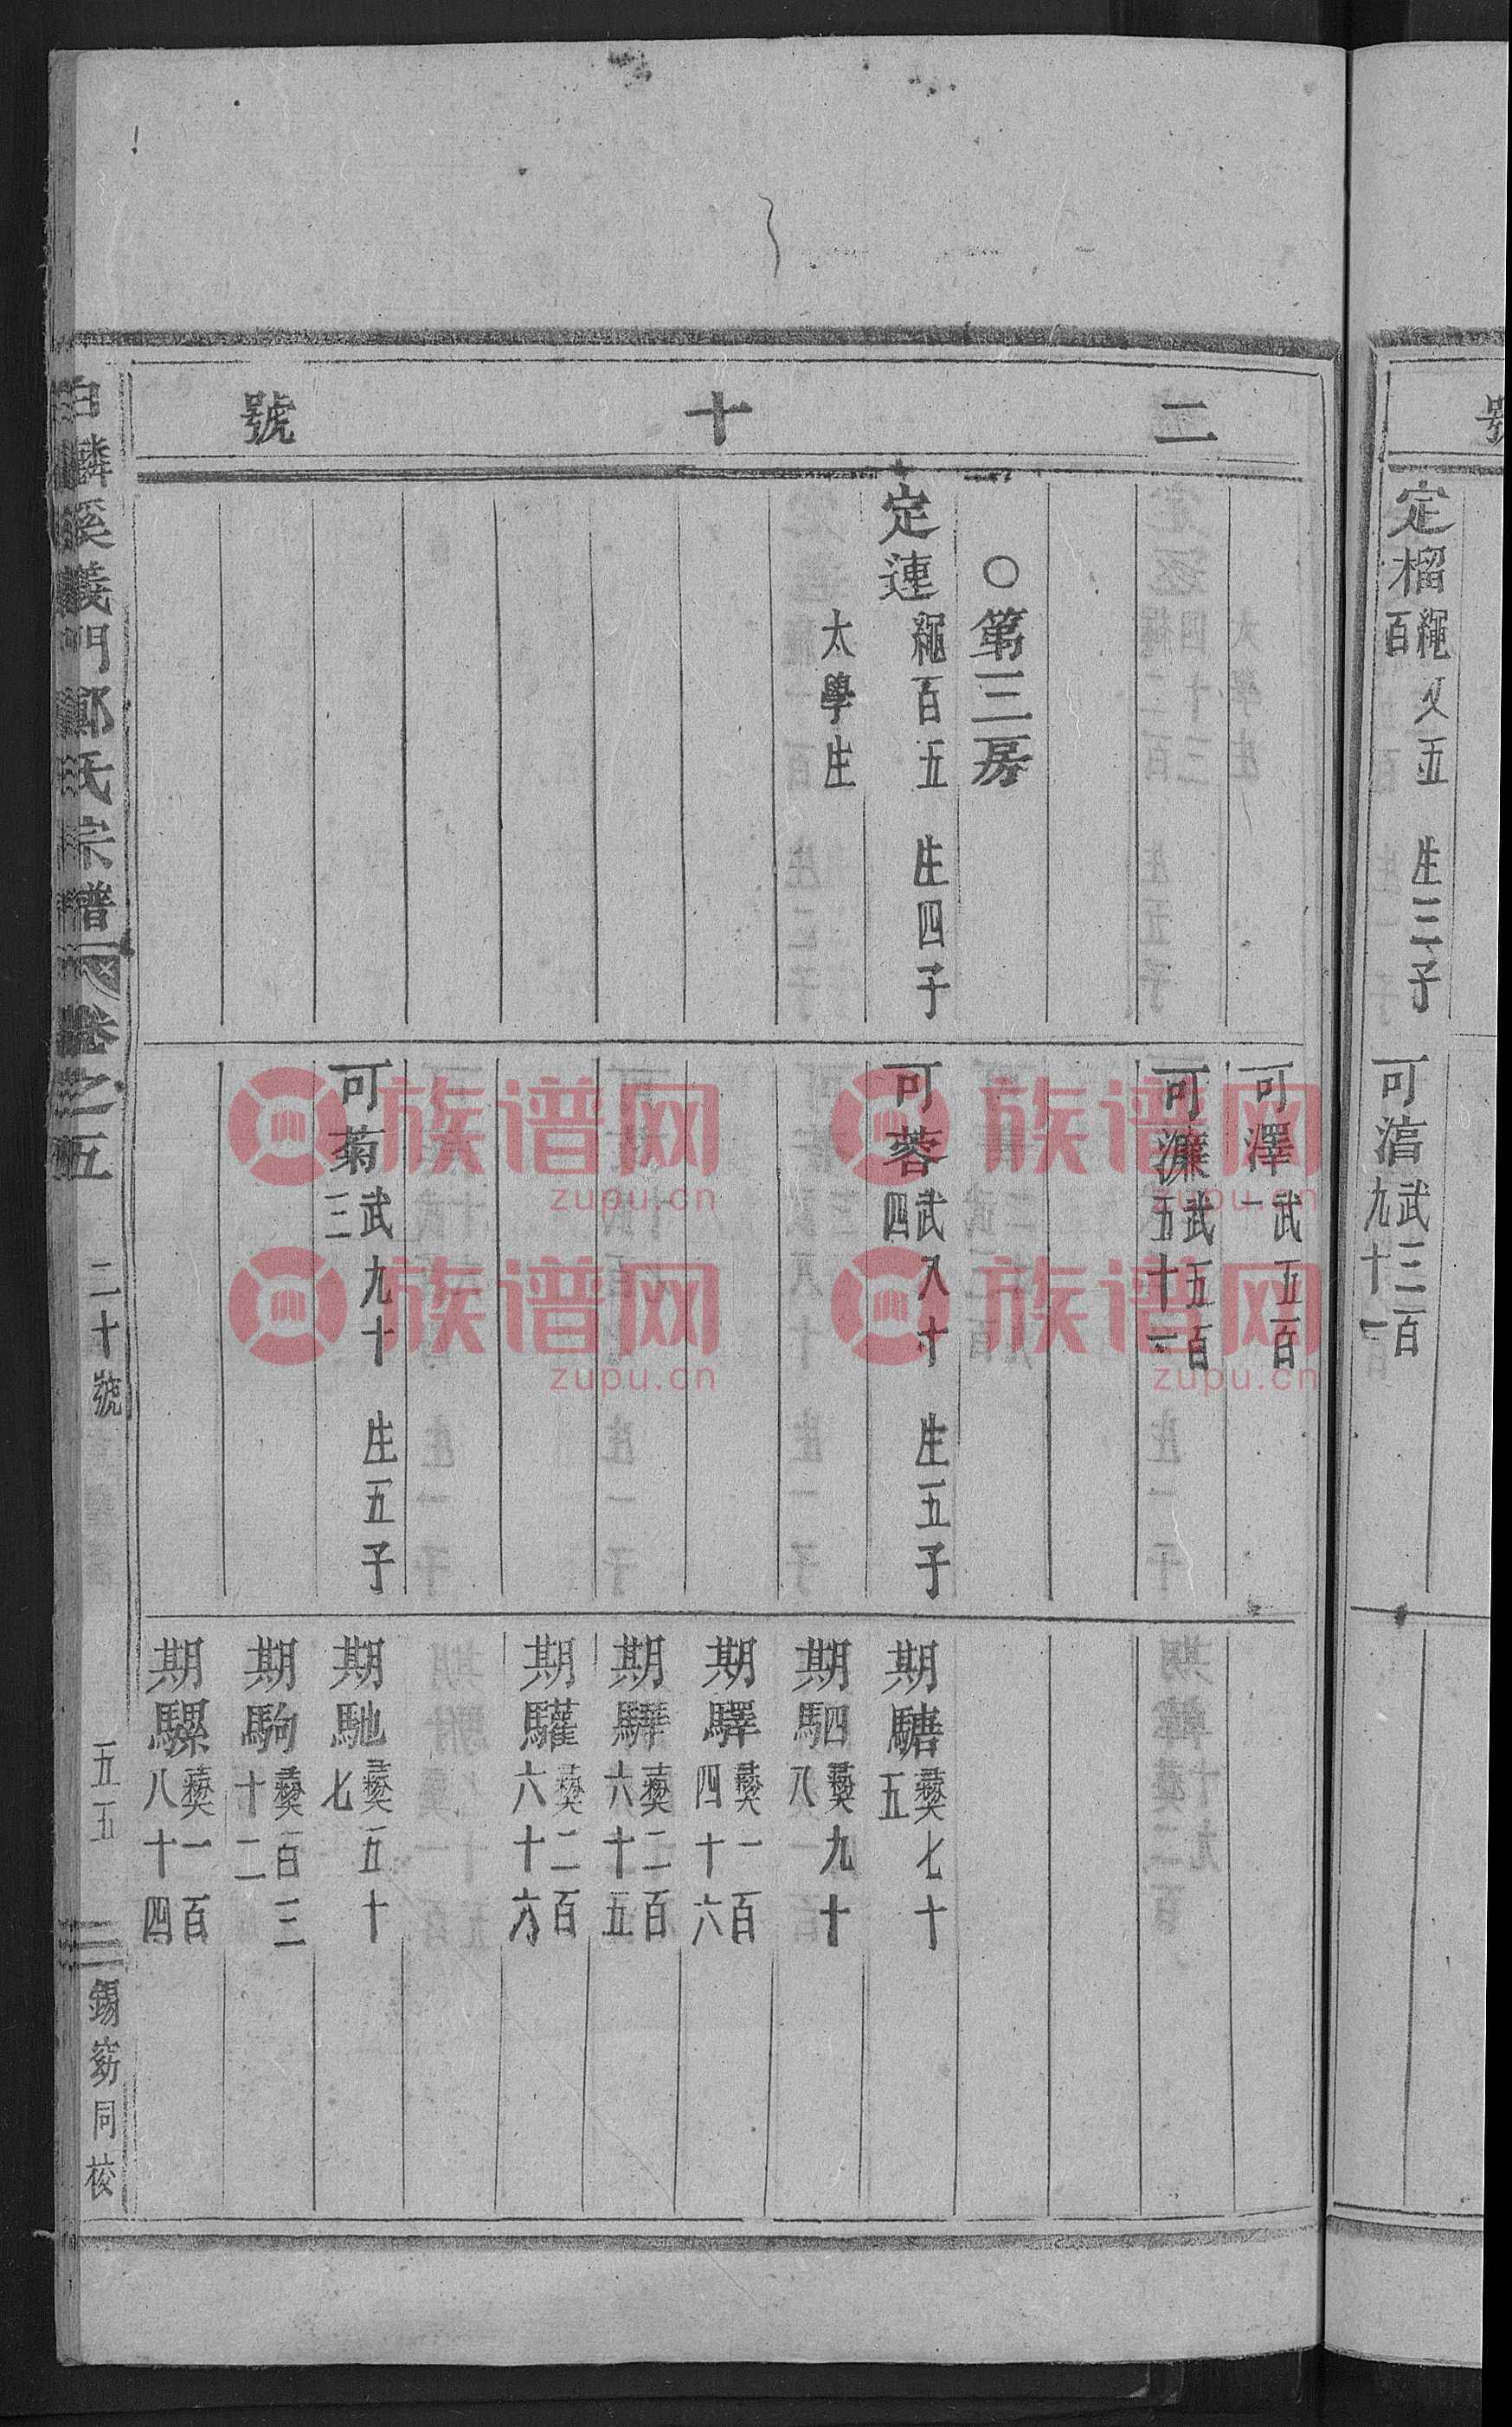 號
定榴繩又五百 生三子
武三百九十一
二十號
可澤武五百一
可濂武五百五十一
○第三房
定連繩百五 生四子
太學生
可蓉武八十四 生五子
期驌彝七十五
期駟彝九十八
期驛彝一百四十六
期驊彝二百六十五
期驩彝二百六十六
可菊武九十三 生五子
期馳彝五十七
期駒彝百三十二
期騾彝一百八十四
白麟溪義門鄭氏宗譜 卷之五 二十號 五五 錫 同校
族谱网
zupu.cn
族谱网
zupu.cn
族谱网
zupu.cn
族谱网
zupu.cn